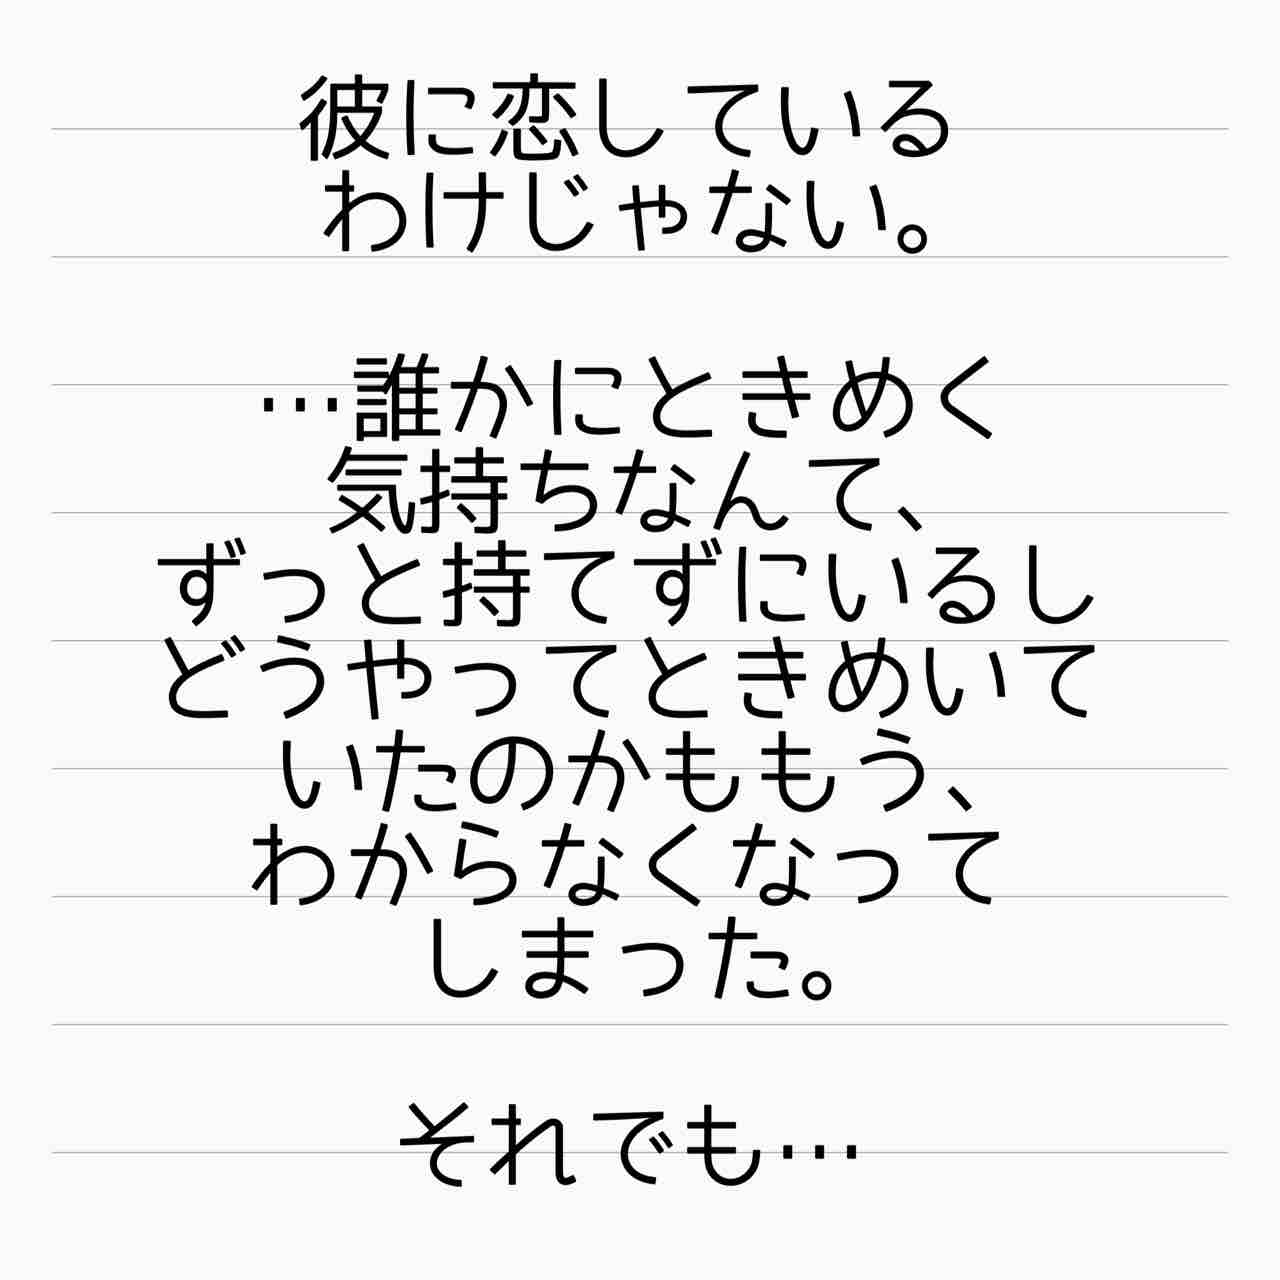 彼に恋している
わけじゃない。
…誰かにときめく
気持ちなんて、
ずっと持てずにいるし
どうやってときめいて
いたのかももう、
わからなくなって
しまった。
それでも…